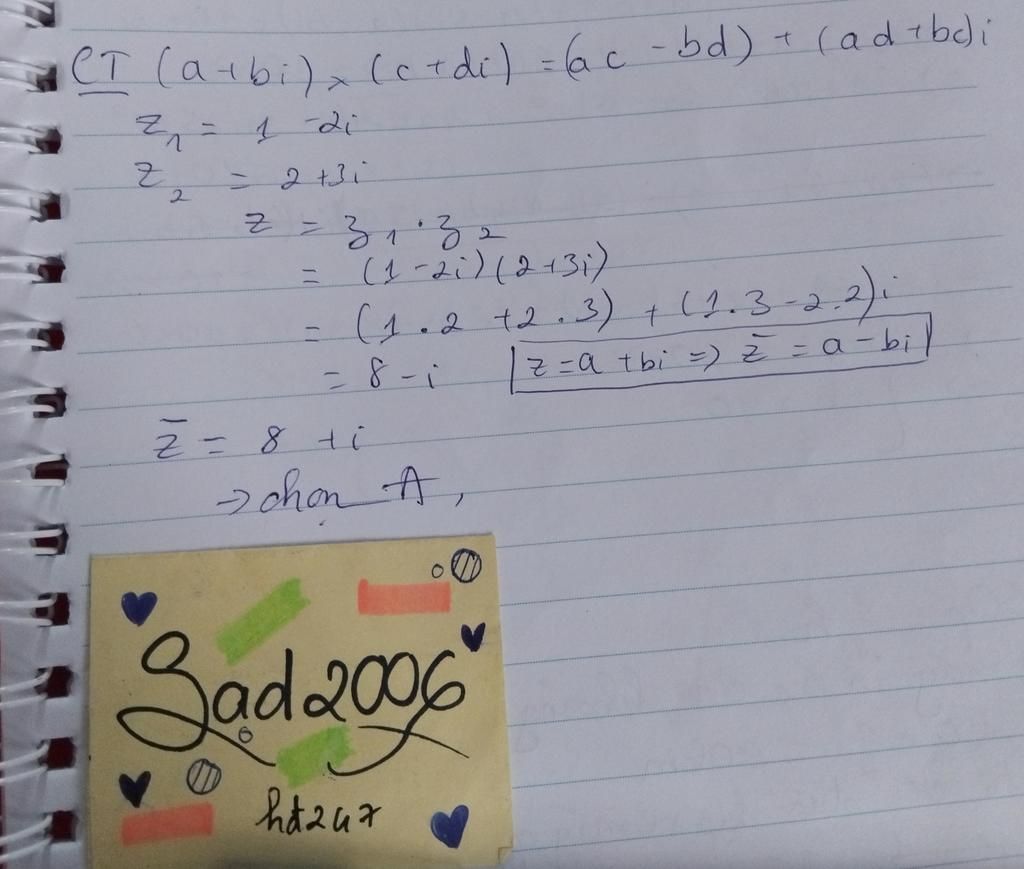 CT (a+bi) × (c+di) = (ac - bd) + (ad+bc)i
z₁ = 1 -2i
z₂ = 2+3i
z = z₁ . z₂
= (1-2i)(2+3i)
= (1.2 +2.3) + (1.3-2.2)i
= 8 - i
z=a +bi => z̄ = a - bi
z̄ = 8 +i
→ chọn A,
Sad2006
hd247